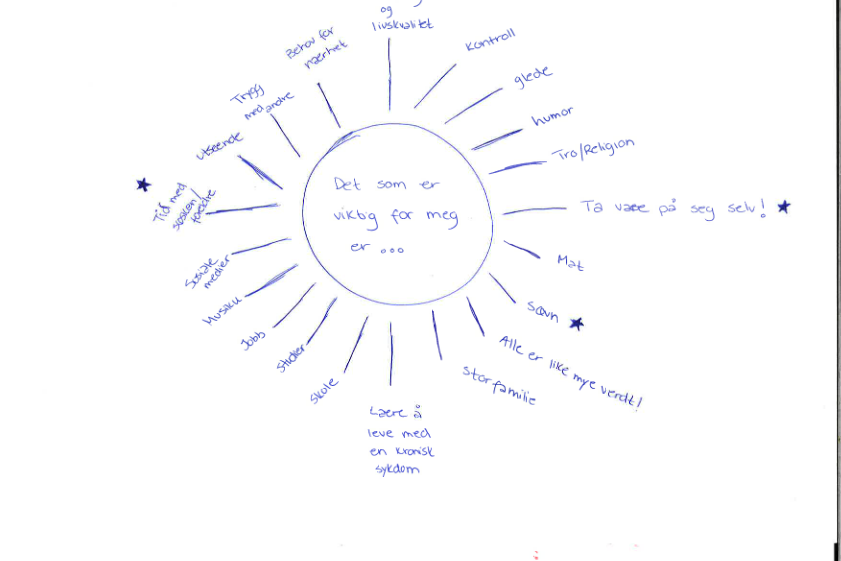 og
livskvalitet
Kontroll
glede
humor
Tro/Religion
Ta vare på seg selv!
Mat
Søvn
Alle er like mye verdt!
Stor familie
Lære å
leve med
en kronisk
sykdom
Skole
Jobb
Musikk
Sosiale
medier
Tid med
søsken/
foreldre
utseende
Trygg
med andre
Behov for
nærhet
Det som er
viktig for meg
er ...